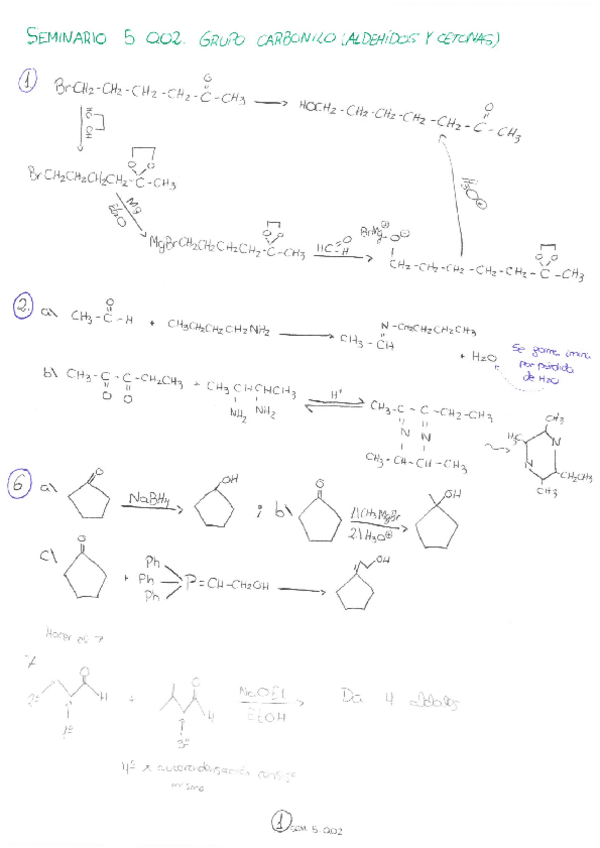 SEMINARIO 5 QO2. GRUPO CARBONILO (ALDEHÍDOS Y CETONAS)
1
BrCH₂-CH₂-CH₂-CH₂-C-CH₃ → HOCH₂-CH₂-CH₂-CH₂-CH₂-C-CH₃
O O
HO OH
H₃O⊕
BrCH₂CH₂CH₂CH₂-C-CH₃
O O
Mg
Et₂O
MgBrCH₂CH₂CH₂CH₂-C-CH₃
O O
H-C-H
O
BrMg⊕ O⊖
CH₂-CH₂-CH₂-CH₂-CH₂-C-CH₃
O O
2. a) CH₃-C-H + CH₃CH₂CH₂CH₂NH₂ → CH₃-CH
O
N-CH₂CH₂CH₂CH₃
+ H₂O
Se forma imina
por pérdida
de H₂O
b) CH₃-C-C-CH₂CH₃ + CH₃CHCHCH₃
O O NH₂ NH₂
H⁺
CH₃-C-C-CH₂-CH₃
N N
CH₃-CH-CH-CH₃
H₃C CH₃
N N
CH₂CH₃
CH₃
6 a) O NaBH₄ OH ; b) O 1) CH₃MgBr OH
2) H₃O⊕
c) O
+ Ph Ph Ph P=CH-CH₂OH → OH
Hacer el 7
7
O H + O H NaOEt → Da 4 aldoles
EtOH
2º 1º 3º
4º x autocondensación consigo
mismo
1 SEM 5.QO2